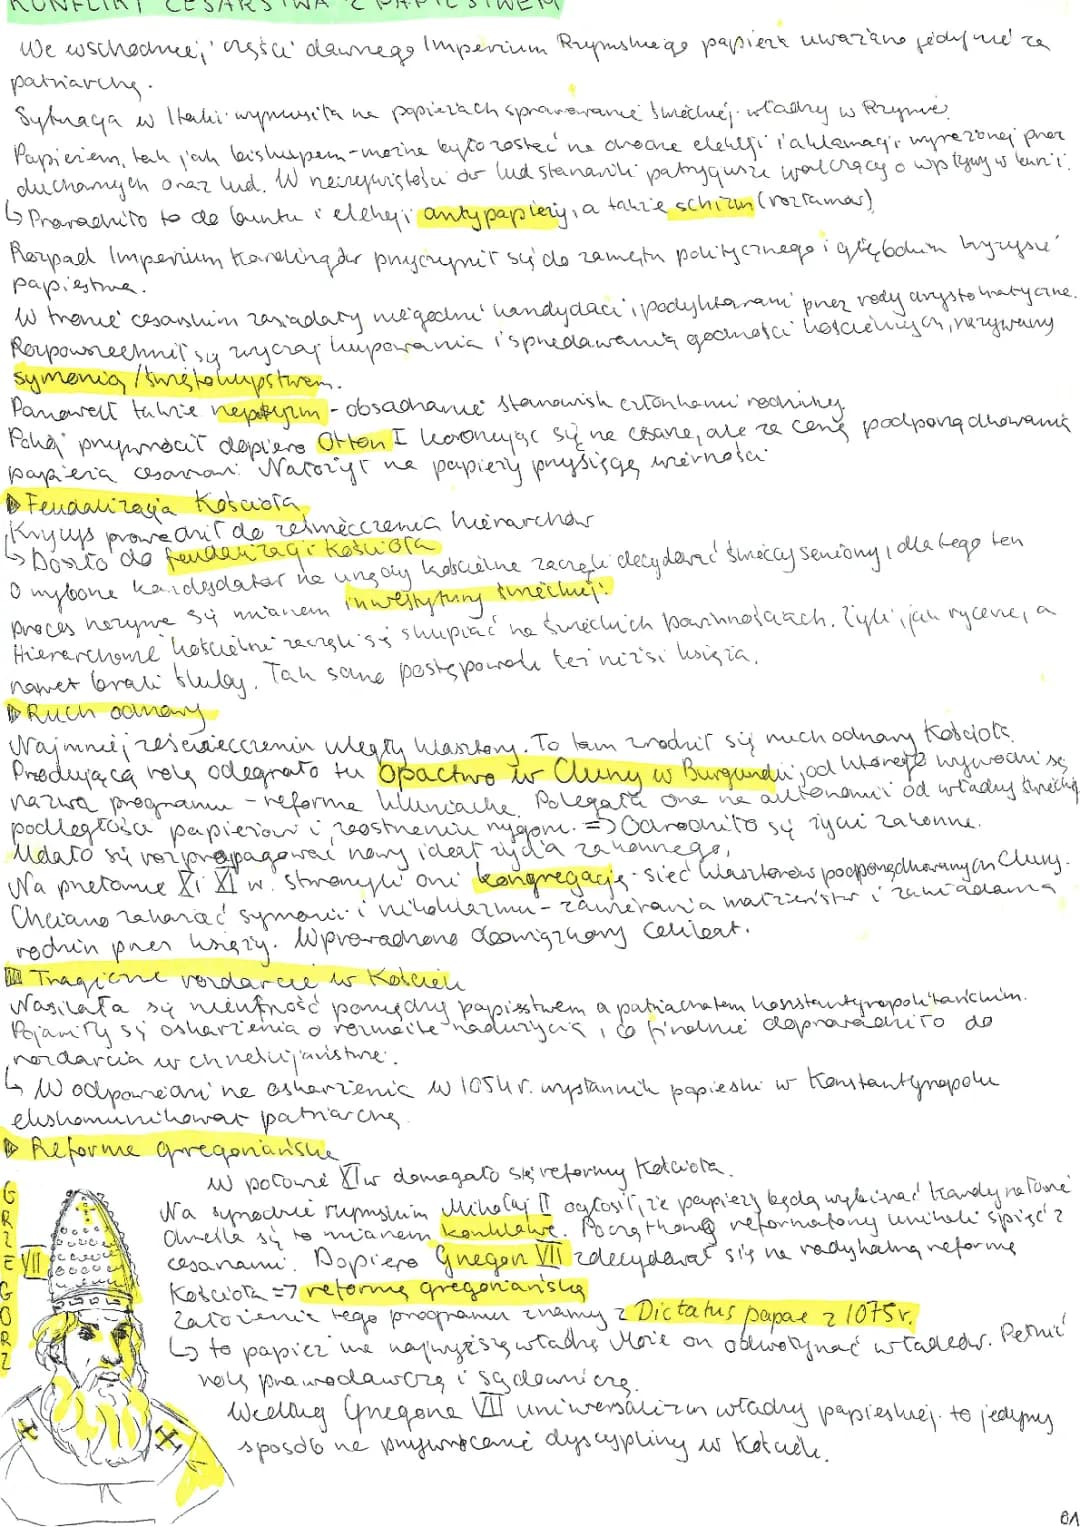 KONFLIKT CESARSTWA Z PAPIESTWEM
We wschodniej części dawnego Imperium Rzymskiego papieża uważano jedynie za
patriarchę.
Sytuacja w Italii wymusiła na papieżach sprawowanie świeckiej władzy w Rzymie.
Papieżem, tak jak biskupem - można było zostać na drodze elekcji i aklamacji wyrażonej przez
duchownych oraz lud. W rzeczywistości do lud stanowili patrycjusze walczący o wpływy w kurii.
↳ Prowadziło to do buntu i elekcji antypapieży, a także schizm (rozłamów)
Rozpad Imperium Karolingów przyczynił się do zamętu politycznego i głębokim kryzysie
papiestwa.
W tronie cesarskim zasiadały niegodni kandydaci, podyktowani przez rody arystokratyczne.
Rozpowszechnił się zwyczaj kupowania i sprzedawania godności kościelnych, nazywany
symonią / świętokupstwem.
Panował także nepotyzm - obsadzanie stanowisk członkami rodziny.
Pokój przywrócił dopiero Otton I koronując się na cesarza, ale za cenę podporządkowania
papieża cesarzowi. Nałożył na papieży przysięgę wierności
Feudalizacja Kościoła
Kryzys prowadził do zeświecczenia hierarchów
↳ Doszło do feudalizacji Kościoła
O wyborze kandydatów na urzędy kościelne zaczęli decydować świeccy seniorzy, dlatego ten
proces nazywa się mianem inwestytury świeckiej.
Hierarchowie kościelni zaczęli się skupiać na świeckich powinnościach. Żyli, jak rycerze, a
nawet brali śluby. Tak samo postępowali też niżsi księża.
Ruch odnowy
Najmniej zeświecczeniu uległy klasztory. To tam zrodził się ruch odnowy Kościoła.
Przodującą rolę odegrało tu Opactwo w Cluny w Burgundii, od którego wywodzi się
nazwa programu - reforma kluniacka. Polegała ona na autonomii od władzy świeckiej
podległości papieżowi i zaostrzeniu rygoru. => Odrodziło się życie zakonne.
Udało się rozpropagować nowy ideał życia zakonnego,
Na przełomie X i XI w. stworzyli oni kongregację - sieć klasztorów podporządkowanych Cluny.
Chciano zakazać symonii i nikolaizmu - zawierania małżeństw i zakładania
rodzin przez księży. Wprowadzono obowiązkowy celibat.
Tragiczne rozdarcie w Kościele
Nasilała się nieufność pomiędzy papiestwem a patriarchatem konstantynopolitańskim.
Pojawiły się oskarżenia o rozmaite nadużycia, co finalnie doprowadziło do
rozdarcia w chrześcijaństwie.
↳ W odpowiedzi na oskarżenia w 1054 r. wysłannik papieski w Konstantynopolu
ekskomunikował patriarchę
Reforma gregoriańska
W połowie XI w domagało się reformy Kościoła.
Na synodzie rzymskim Mikołaj II ogłosił, że papieży będą wybierać kardynałowie
określa się to mianem konklawe. Początkowo reformatorzy unikali spięć z
cesarzami. Dopiero Grzegorz VII zdecydował się na radykalną reformę
Kościoła => reformę gregoriańską
Założenia tego programu znamy z Dictatus papae z 1075 r.
↳ to papież ma najwyższą władzę. Może on odwoływać władców. Pełnić
rolę prawodawczą i sądowniczą.
Według Grzegorza VII uniwersalizm władzy papieskiej to jedyny
sposób na przywrócenie dyscypliny w Kościele.
GRZEGORZ
VII